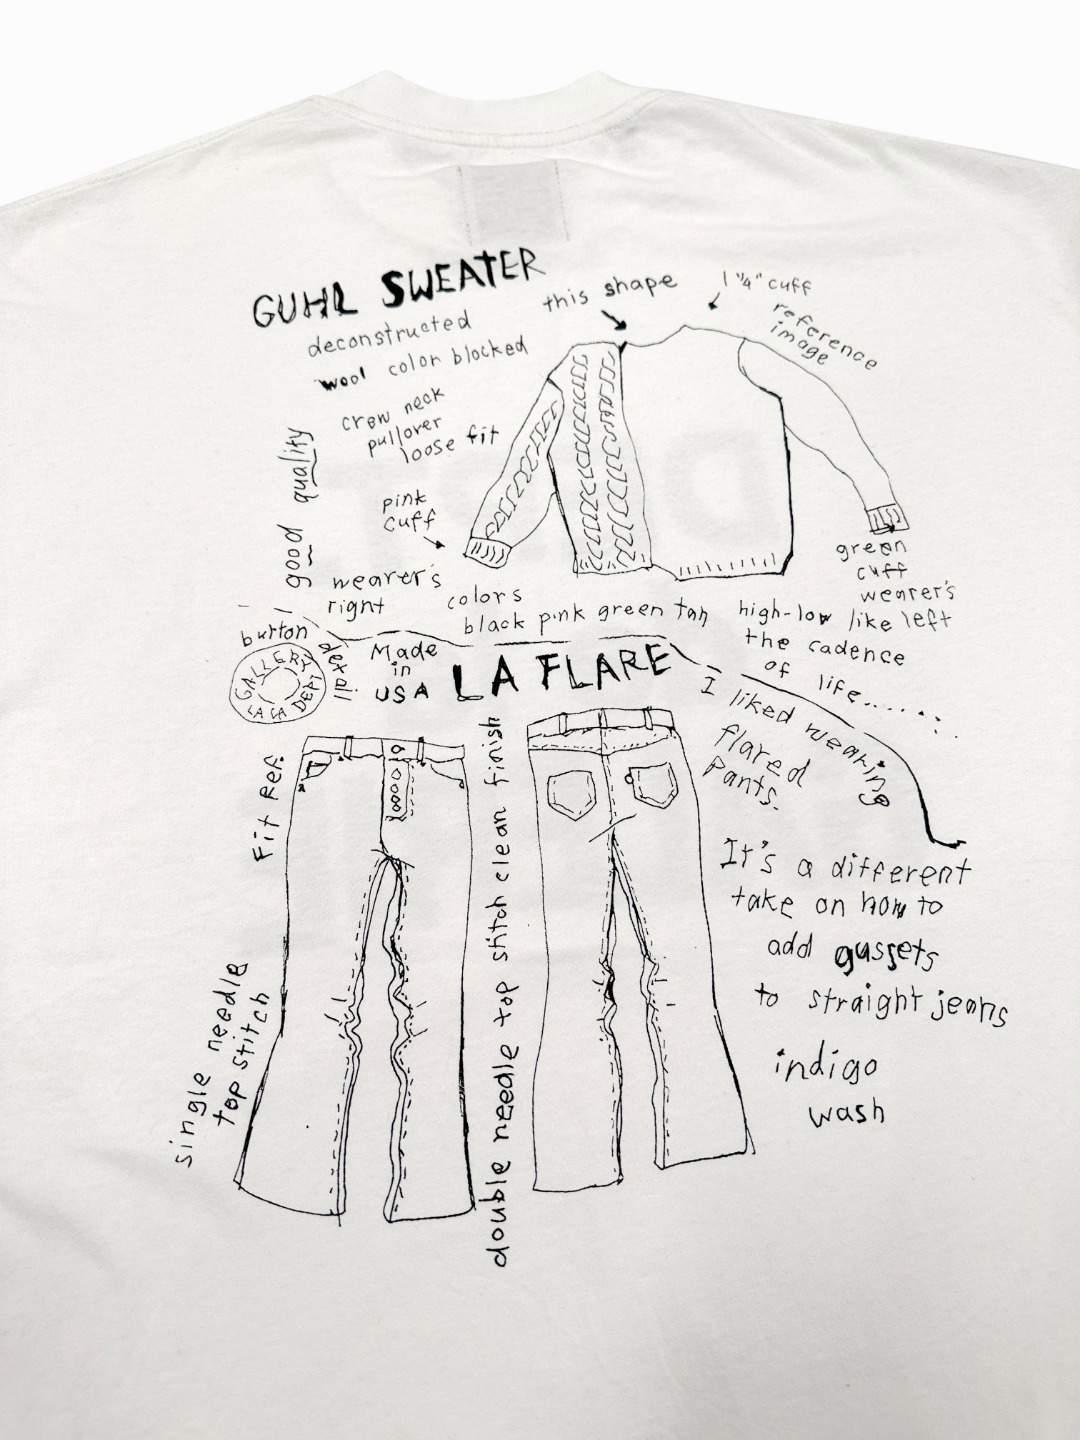 GUHL SWEATER
this shape
1 1/4" cuff
reference
image
deconstructed
wool color blocked
crew neck
pullover
loose fit
good quality
pink
cuff
wearer's
right
colors
black pink green tan
green
cuff
wearer's
left
high-low like
the cadence
of life......
button
detail
GALLERY DEPT
LA CA
Made
in
USA
LA FLARE
I liked wearing
flared
pants.
Fit Ref.
double needle top stitch clean finish
single needle
top stitch
It's a different
take on how to
add gussets
to straight jeans
indigo
wash